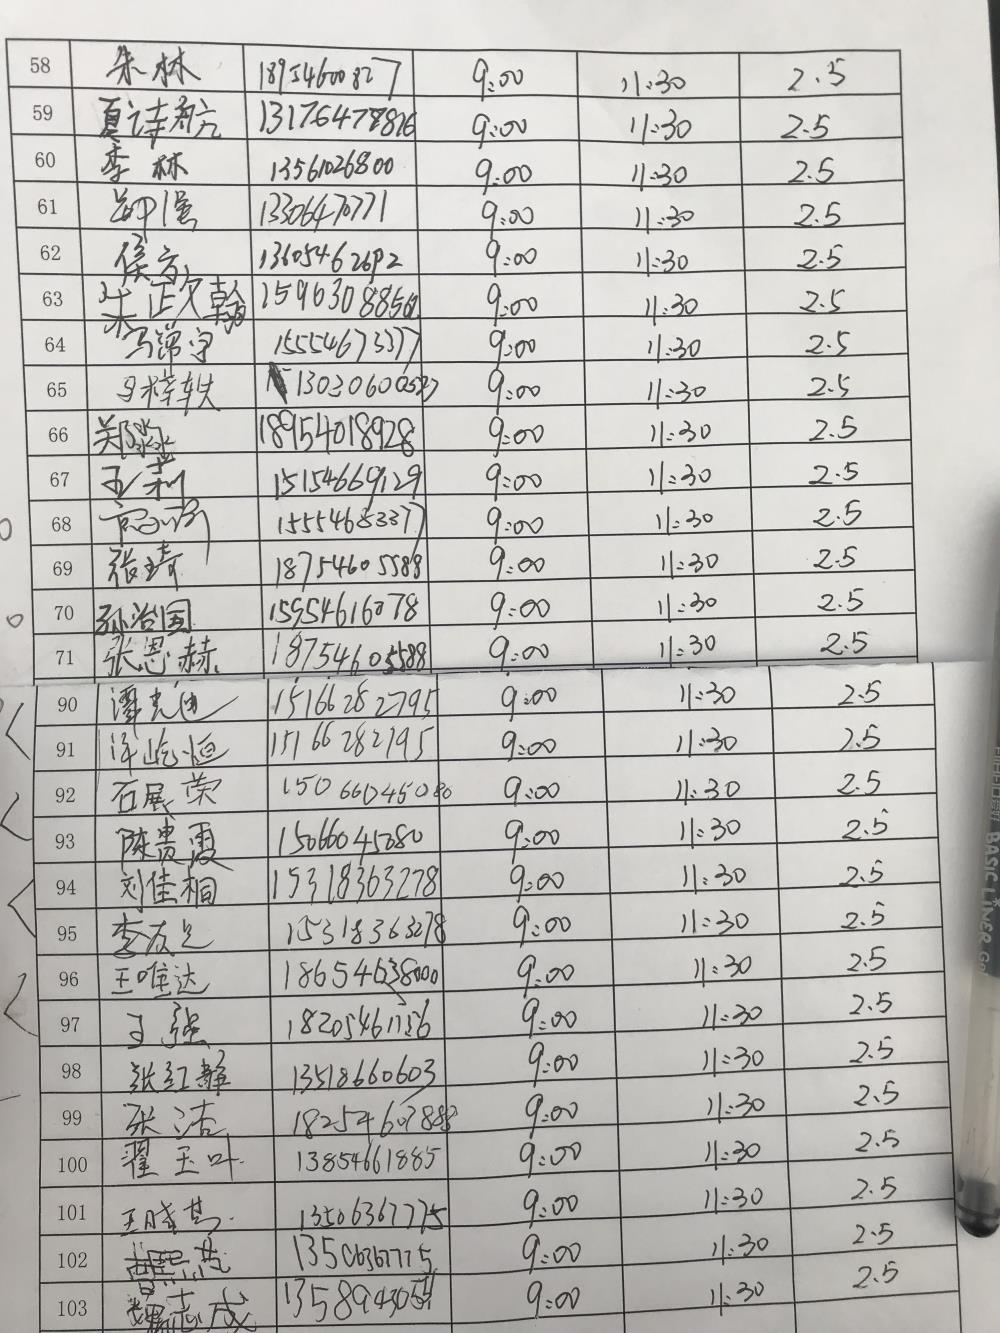 58 朱林 18954600827 9:00 11:30 2.5
59 夏诗航 13176478816 9:00 11:30 2.5
60 李林 13561026800 9:00 11:30 2.5
61 13306470771 9:00 11:30 2.5
62 侯方 13605462692 9:00 11:30 2.5
63 9:00 11:30 2.5
64 15554673377 9:00 11:30 2.5
65 马梓轶 9:00 11:30 2.5
66 郑淼 18954018928 9:00 11:30 2.5
67 王莉 15154669129 9:00 11:30 2.5
68 15554683377 9:00 11:30 2.5
69 张琦 18754605588 9:00 11:30 2.5
70 孙治国 15954616078 9:00 11:30 2.5
71 张恩赫 18754605588 9:00 11:30 2.5
90 15166282795 9:00 11:30 2.5
91 许屹恒 15166282795 9:00 11:30 2.5
92 石展荣 15066045080 9:00 11:30 2.5
93 陈贵霞 15066045080 9:00 11:30 2.5
94 刘佳桐 15318363278 9:00 11:30 2.5
95 15318363278 9:00 11:30 2.5
96 王唯达 18654638000 9:00 11:30 2.5
97 王强 18205461156 9:00 11:30 2.5
98 张红静 13518660603 9:00 11:30 2.5
99 张洁 18254607888 9:00 11:30 2.5
100 翟玉叶 13854661885 9:00 11:30 2.5
101 13506367775 9:00 11:30 2.5
102 13506367775 9:00 11:30 2.5
103 魏志成 9:00 11:30 2.5
BASIC LINER